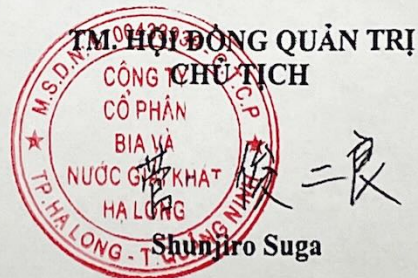 TM. HỘI ĐỒNG QUẢN TRỊ
CHỦ TỊCH
CÔNG TY
CỔ PHẦN
BIA VÀ
NƯỚC GIẢI KHÁT
HẠ LONG
M.S.D.N:
C.T.C.P
TP.HẠ LONG - T.QUẢNG NINH
菅 俊二良
Shunjiro Suga